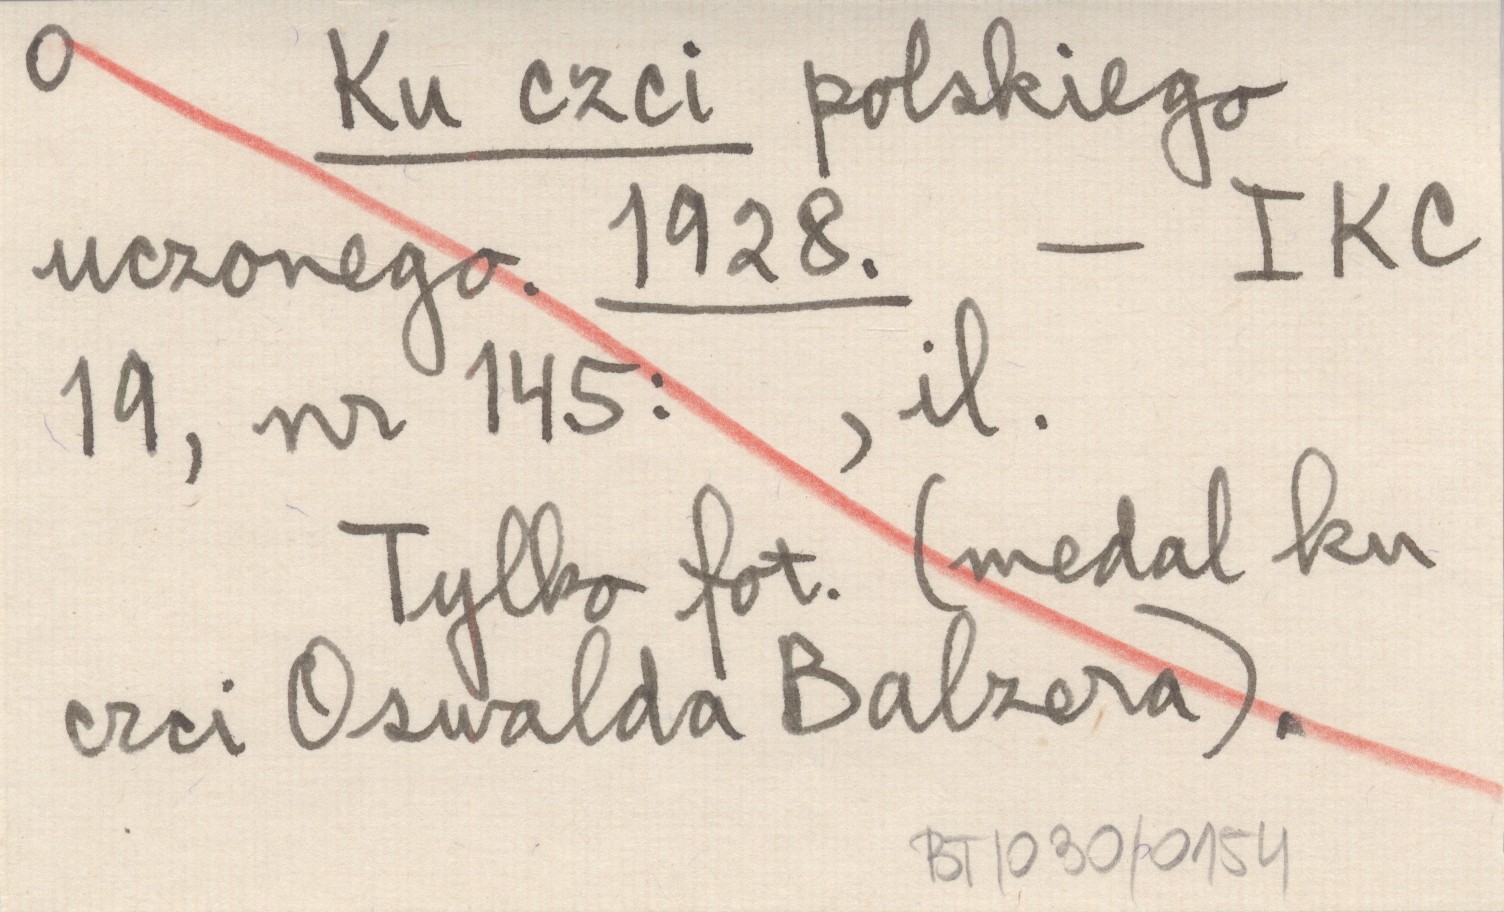 O Ku czci polskiego
uczonego. 1928. — IKC
19, nr 145: , il.
Tylko fot. (medal ku
czci Oswalda Balzera).
BT/030/0154